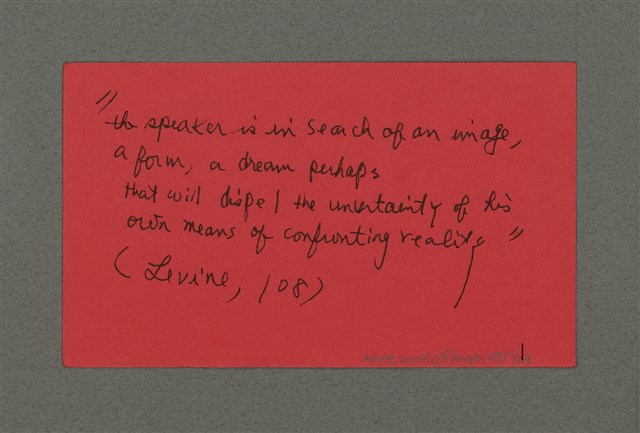 "the speaker is in search of an image,
a form, a dream perhaps
that will dispel the uncertainty of his
own means of confronting reality"
(Levine, 108)